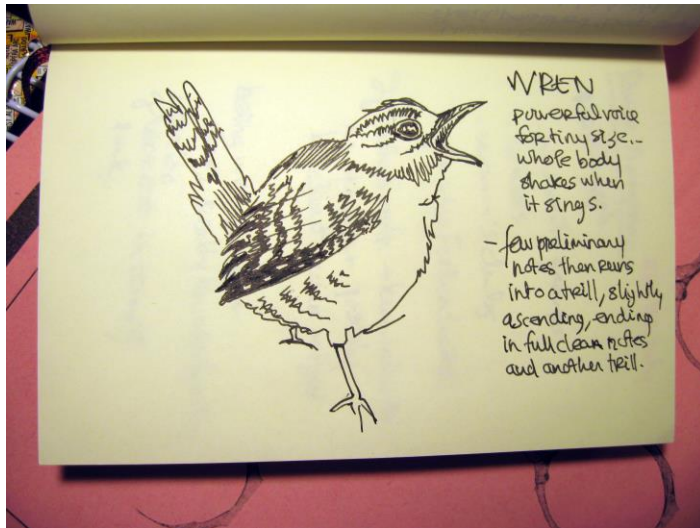 WREN
powerful voice
for tiny size...
whole body
shakes when
it sings.
- few preliminary
notes then runs
into a trill, slightly
ascending, ending
in full clear notes
and another trill.